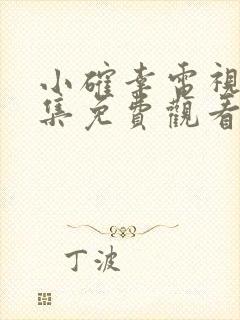 小確幸電視
集免費觀看
丁波